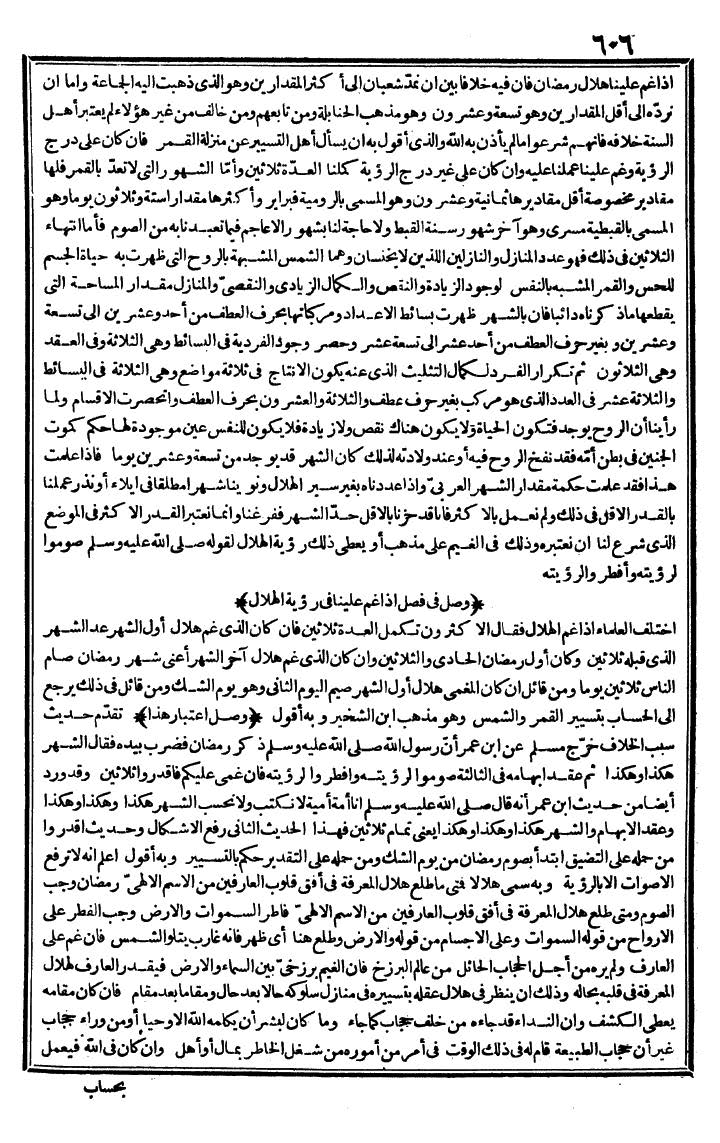 ٦٠٦
اذا غم علينا هلال رمضان فان فيه خلافا بين ان نمد شعبان الى أكثر المقدارين وهو الذى ذهبت اليه الجماعة واما ان
نرده الى أقل المقدارين وهو تسعة وعشرون وهو مذهب الحنابلة ومن تابعهم ومن خالف من غير هؤلاء لم يعتبر أهل
السنة خلافه فانهم شرعوا ما لم يأذن به الله والذى أقول به ان يسأل أهل التسيير عن منزلة القمر فان كان على درج
الرؤية وغم علينا عملنا عليه وان كان على غير درج الرؤية كملنا العدة ثلاثين وأما الشهور التى لا تعد بالقمر فلها
مقادير مخصوصة أقل مقاديرها ثمانية وعشرون وهو المسمى بالرومية فبراير وأكثرها مقدارا ستة وثلاثون يوما وهو
المسمى بالقبطية مسرى وهو آخر شهور سنة القبط ولا حاجة لنا بشهور الاعاجم فيما تعبدنا به من الصوم فأما انتهاء
الثلاثين فى ذلك فهو عدد المنازل والنازلين اللذين لا يخنسان وهما الشمس المشبهة بالروح التى ظهرت به حياة الجسم
للحس والقمر المشبه بالنفس لوجود الزيادة والنقص والكمال الزيادى والنقصى والمنازل مقدار المساحة التى
يقطعها ما ذكرناه دائبا فان بالشهر ظهرت بسائط الاعداد ومركباتها بحرف العطف من أحد وعشرين الى تسعة
وعشرين وبغير حرف العطف من أحد عشر الى تسعة عشر وحصر وجود الفردية فى البسائط وهى الثلاثة وفى العقد
وهى الثلاثون ثم تكرار الفرد لكمال التثليث الذى عنه يكون الانتاج فى ثلاثة مواضع وهى الثلاثة فى البسائط
والثلاثة عشر فى العدد الذى هو مركب بغير حرف عطف والثلاثة والعشرون بحرف العطف وانحصرت الاقسام ولما
رأينا أن الروح يوجد فتكون الحياة ولا يكون هناك نقص ولا زيادة فلا يكون للنفس عين موجودة لها حكم كموت
الجنين فى بطن أمه فقد نفخ الروح فيه أو عند ولادته لذلك كان الشهر قد يوجد من تسعة وعشرين يوما فاذا علمت
هذا فقد علمت حكمة مقدار الشهر العربى واذا عددناه بغير سير الهلال ونوينا شهرا مطلقا فى ايلاء أو نذر عملنا
بالقدر الاقل فى ذلك ولم نعمل بالاكثر فانا قد حزنا بالاقل حد الشهر ففرغنا وانما نعتبر القدر الاكثر فى الموضع
الذى شرع لنا ان نعتبره وذلك فى الغيم على مذهب أو يعطى ذلك رؤية الهلال لقوله صلى الله عليه وسلم صوموا
لرؤيته وأفطروا لرؤيته
﴿وصل فى فصل اذا غم علينا فى رؤية الهلال﴾
اختلف العلماء اذا غم الهلال فقال الاكثرون تكمل العدة ثلاثين فان كان الذى غم هلال أول الشهر عد الشهر
الذى قبله ثلاثين وكان أول رمضان الحادى والثلاثين وان كان الذى غم هلال آخر الشهر أعنى شهر رمضان صام
الناس ثلاثين يوما ومن قائل ان كان المغمى هلال أول الشهر صيم اليوم الثانى وهو يوم الشك ومن قائل فى ذلك يرجع
الى الحساب بتسيير القمر والشمس وهو مذهب ابن الشخير وبه أقول ﴿وصل اعتبار هذا﴾ تقدم حديث
سبب الخلاف خرّج مسلم عن ابن عمر أن رسول الله صلى الله عليه وسلم ذكر رمضان فضرب بيده فقال الشهر
هكذا وهكذا ثم عقد ابهامه فى الثالثة صوموا لرؤيته وافطروا لرؤيته فان غمى عليكم فاقدروا ثلاثين وقد ورد
أيضا من حديث ابن عمر أنه قال صلى الله عليه وسلم انا أمة أمية لا نكتب ولا نحسب الشهر هكذا وهكذا وهكذا
وعقد الابهام والشهر هكذا وهكذا وهكذا يعنى تمام ثلاثين فهذا الحديث الثانى رفع الاشكال وحديث اقدروا
من حمله على التضيق ابتدأ بصوم رمضان من يوم الشك ومن حمله على التقدير حكم بالتسيير وبه أقول اعلم انه لا ترفع
الاصوات الا بالرؤية وبه سمى هلالا فتى ما طلع هلال المعرفة فى أفق قلوب العارفين من الاسم الالهى رمضان وجب
الصوم ومتى طلع هلال المعرفة فى أفق قلوب العارفين من الاسم الالهى فاطر السموات والارض وجب الفطر على
الارواح من قوله السموات وعلى الاجسام من قوله والارض وطلع هنا أى ظهر فانه غارب يتلو الشمس فان غم على
العارف ولم يره من أجل الحجاب الحائل من عالم البرزخ فان الغيم برزخى بين السماء والارض فيقدر العارف لهلال
المعرفة فى قلبه بحاله وذلك ان ينظر فى هلال عقله بتسييره فى منازل سلوكه حالا بعد حال ومقاما بعد مقام فان كان مقامه
يعطى الكشف وان النداء قد جاءه من خلف حجاب كما جاء وما كان لبشر أن يكلمه الله الا وحيا أو من وراء حجاب
غير أن حجاب الطبيعة قام له فى ذلك الوقت فى أمر من أموره من شغل الخاطر بمال أو أهل وان كان فى الله فيعمل
بحساب